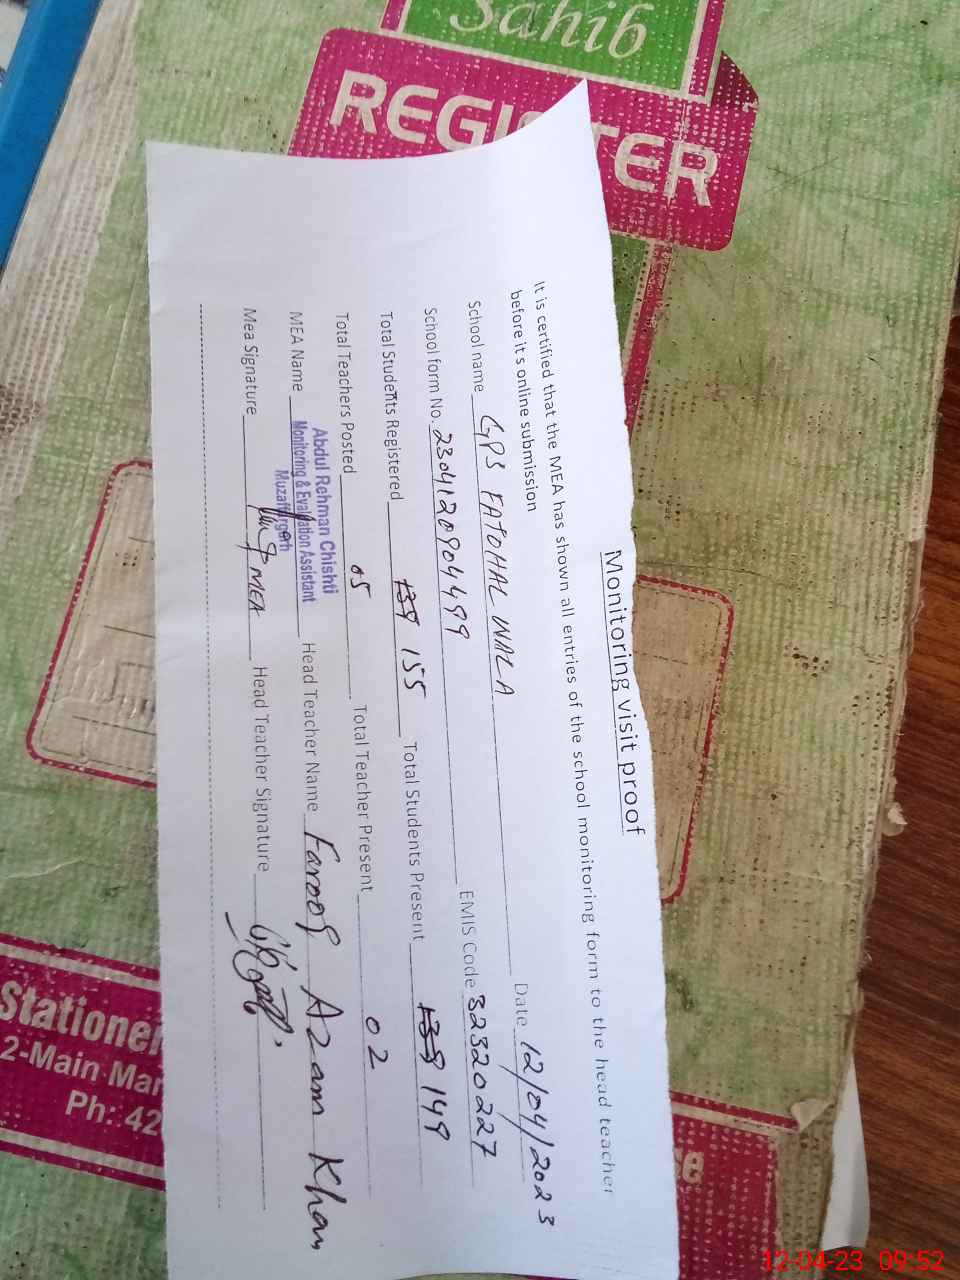 Sahib
REGISTER
Monitoring visit proof
It is certified that the MEA has shown all entries of the school monitoring form to the head teacher
before it s online submission
School name GPS FATOHAL WALA Date 12/04/2023
School form No. 2304120904499 EMIS Code 32320227
Total Students Registered 139 155 Total Students Present 139 149
Total Teachers Posted 05 Total Teacher Present 02
MEA Name Abdul Rehman Chishti Head Teacher Name Farooq Azam Khan
Monitoring & Evaluation Assistant
Muzaffargarh
Mea Signature MEA Head Teacher Signature
Stationer
2-Main Mar
Ph: 42
12-04-23 09:52